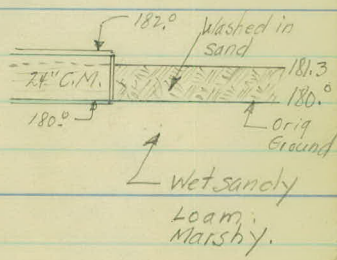 182.0
Washed in
sand
181.3
24" C.M.
180.0
180.0
Orig
Ground
Wet sandy
Loam.
Marshy.